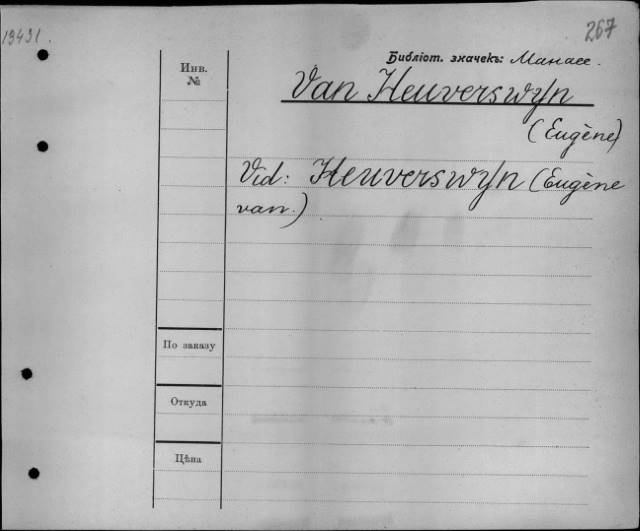 13431.
267
Библіот. значекъ: Манасс.
Инв.
№
Van Heuverswyn
(Eugène)
Vid: Heuverswyn (Eugène
van.)
По заказу
Откуда
Цѣна